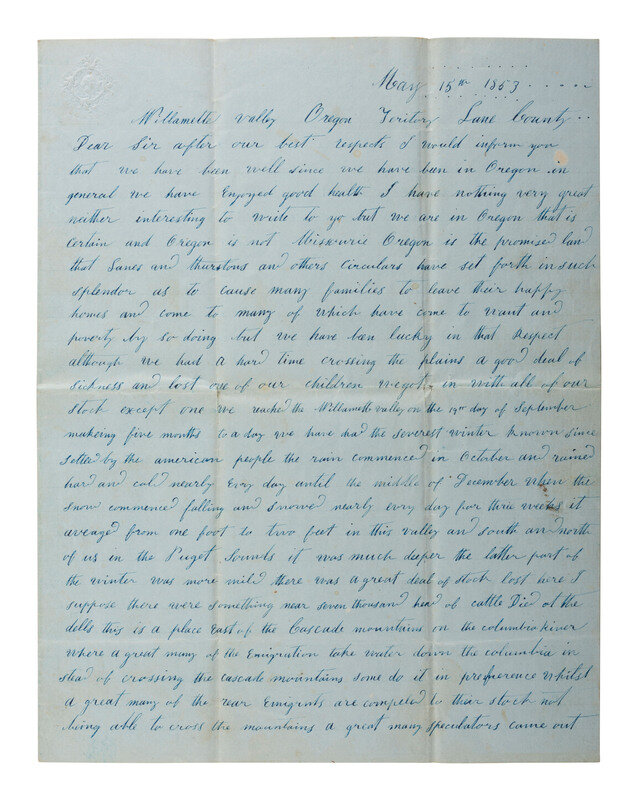 May 15th 1853
Willamette valley Oregon Teritory Lane County
Dear Sir after our best respects I would inform you
that we have been well since we have been in Oregon in
general we have Enjoyed good health I have nothing very great
neither interesting to write to yo but we are in Oregon that is
Certain and Oregon is not Miswurie Oregon is the promised land
that Lanes and thurstons and others Circulars have set forth in such
splendor as to cause many families to leave their happy
homes and come to many of which have come to want and
poverty by so doing but we have been lucky in that Respect
although we had a hard time crossing the plains a good deal of
sickness and lost one of our children we got in with all of our
stock except one we reached the Willamette valley on the 19th day of September
makeing five months to a day we have had the severest winter known since
Setled by the american people the rain commenced in October and rained
hard and cold nearly Evry day until the middle of December when the
snow commenced falling and snowed nearly evry day for three weeks it
aveaged from one foot to two feet in this valley and south and north
of us in the Puget Sounds it was much deeper the latter part of
the winter was more mild there was a great deal of stock lost here I
suppose there were something near seven thousand head of cattle Died at the
dells this is a place East of the Cascade mountains on the columbia River
where a great many of the Emigration take water down the columbia in
stead of crossing the cascade mountains some do it in preference whilst
a great many of the rear Emigrnts are compeled to thier stock not
being able to cross the mountains a great many speculators came out